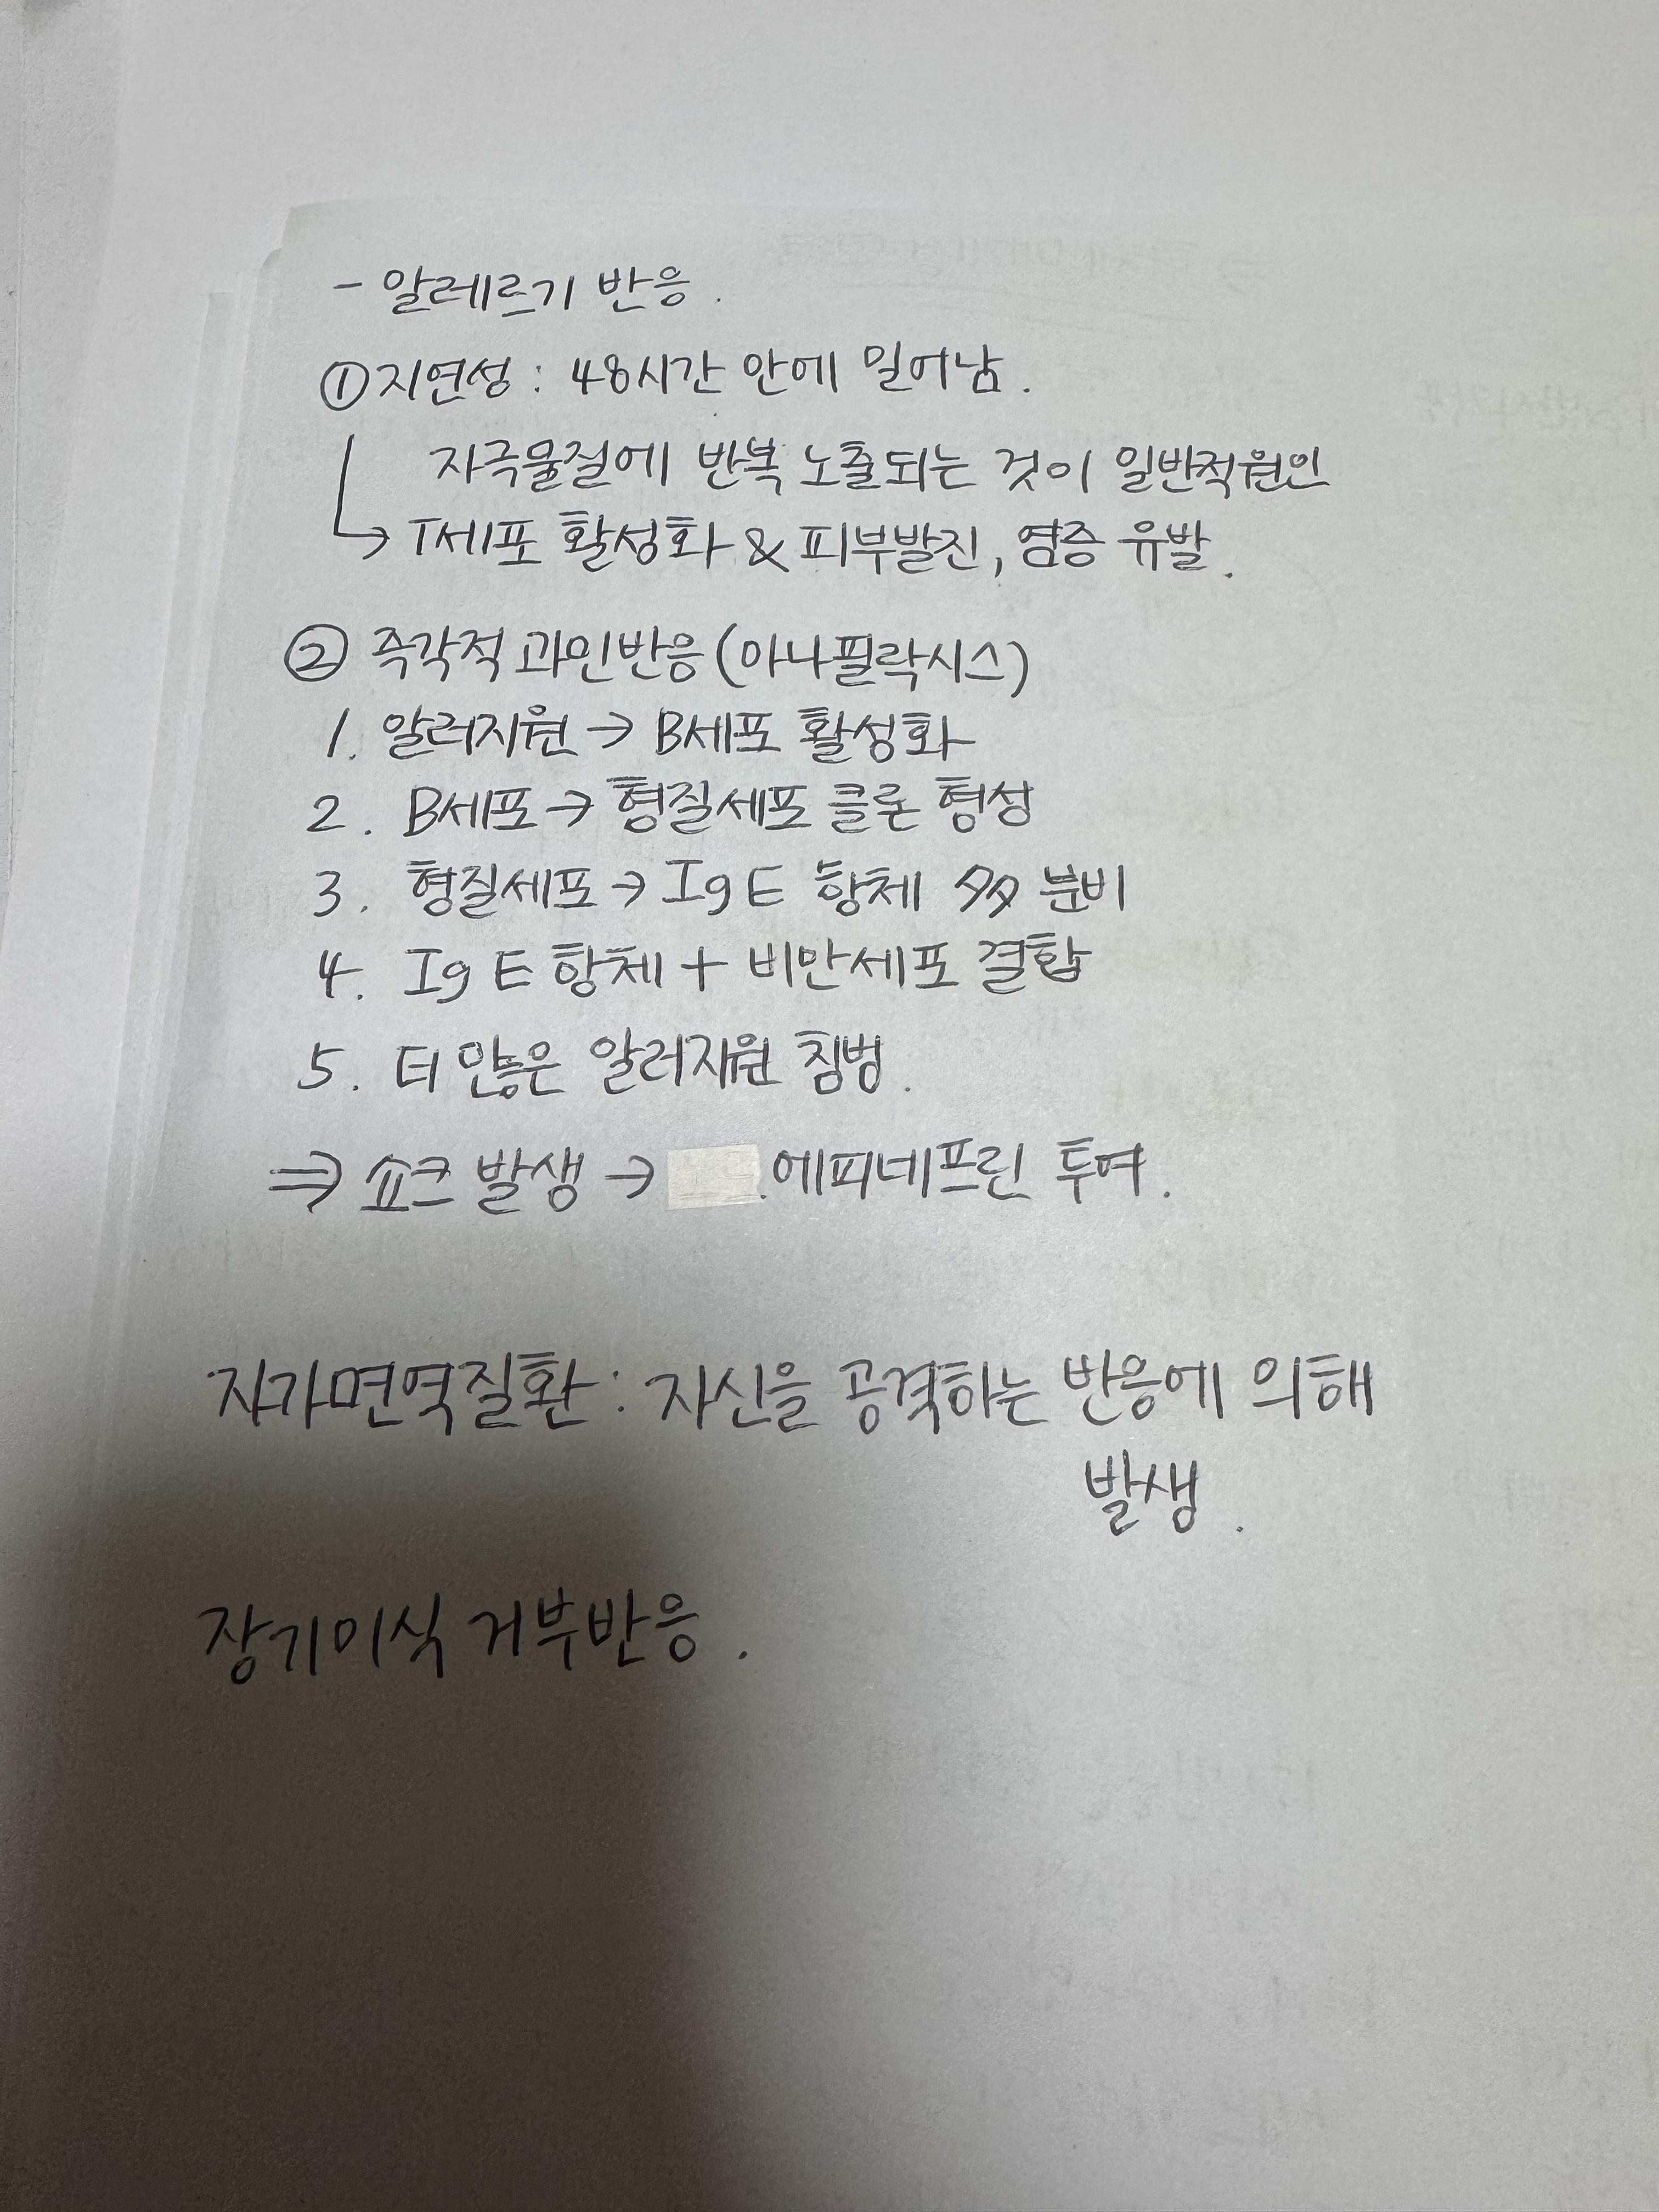 - 알레르기 반응.
① 지연성 : 48시간 안에 일어남.
자극물질에 반복 노출되는 것이 일반적원인
→ T세포 활성화 & 피부발진, 염증 유발.
② 즉각적 과민반응 (아나필락시스)
1. 알러지원 → B세포 활성화
2. B세포 → 형질세포 클론 형성
3. 형질세포 → IgE 항체 多多 분비
4. IgE 항체 + 비만세포 결합
5. 더 많은 알러지원 침범.
⇒ 쇼크 발생 → 에피네프린 투여.
자가면역질환 : 자신을 공격하는 반응에 의해
발생.
장기이식 거부반응.